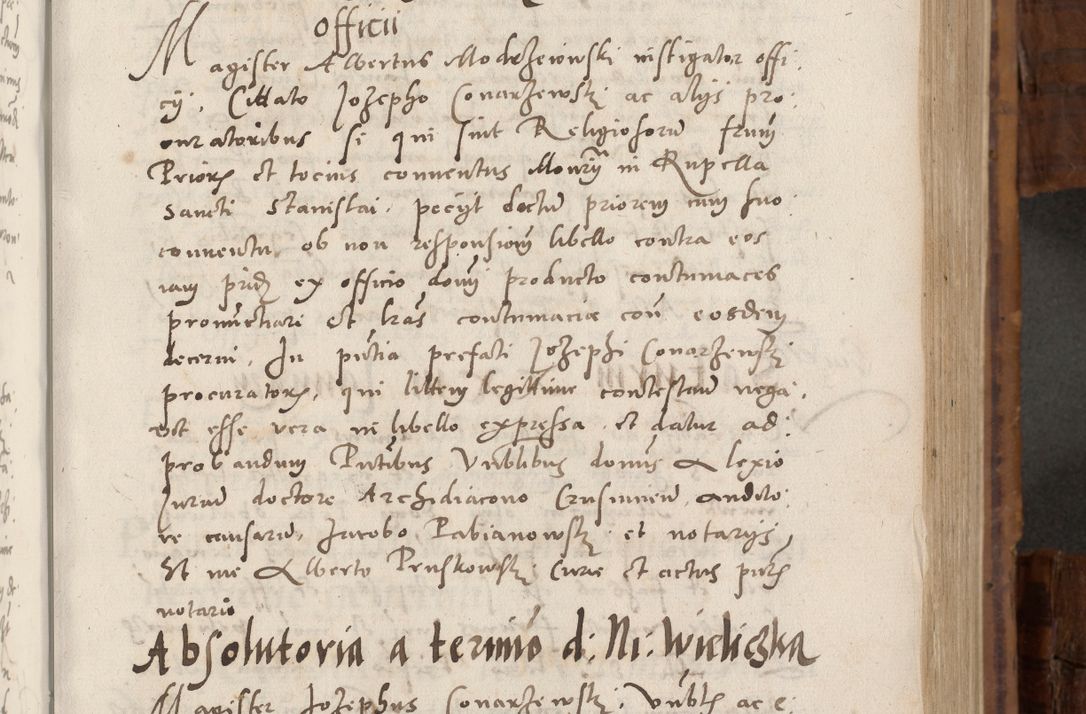 officii
Magister Albertus Modrzeiowski instigator offi:
cij, Cittato Jozepho Conarzewskj ac alijs pro:
curatoribus si qui sint Religiosorū frum
Prioris et tocius conuentus in Rupella
Sancti Stanislai, pecijt dictū priorem cum suo
conuentu, ob non responsionē libello contra eos
iam prid ex officio domī producto contumaces
pronūctiari et lras contumaciæ con eosdem
decerni, In pntia prefati Jozephi Conarzewskj
procuratoris, qui littem legittime contestand nega,
vit esse vera in libello expressa et datur ad
probandum Pntibus Vnblibus domīs Alexio
Jurium doctore Archidiacono Crusuicien, audito:
re causarū, Jacobo Pabianowskj et notarijs,
Et me Alberto Pruskowskj Curiæ et actus pntis
notario
Absolutoria a termīo d: Ni: Wieliczka
Magister Jozephus Conarzewskj, Vnblis ac e: